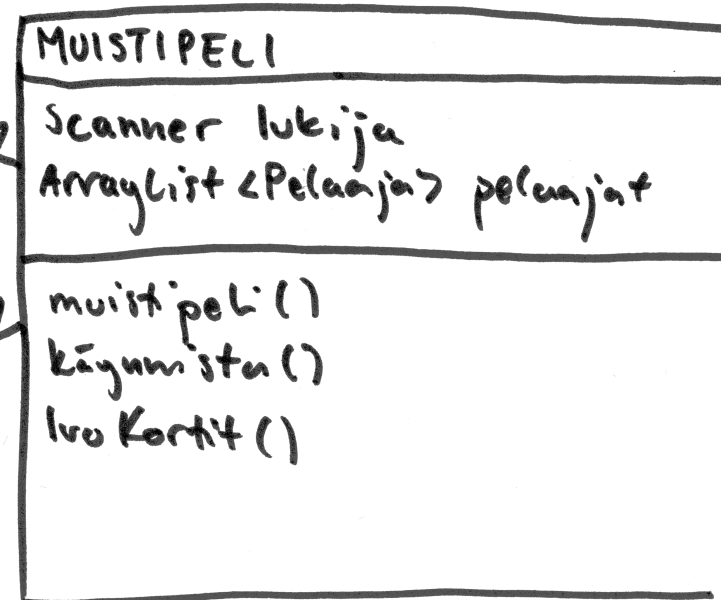 MUISTIPELI
Scanner lukija
ArrayList <Pelaaja> pelaajat
muistipeli()
käynnistä()
luo Kortit()